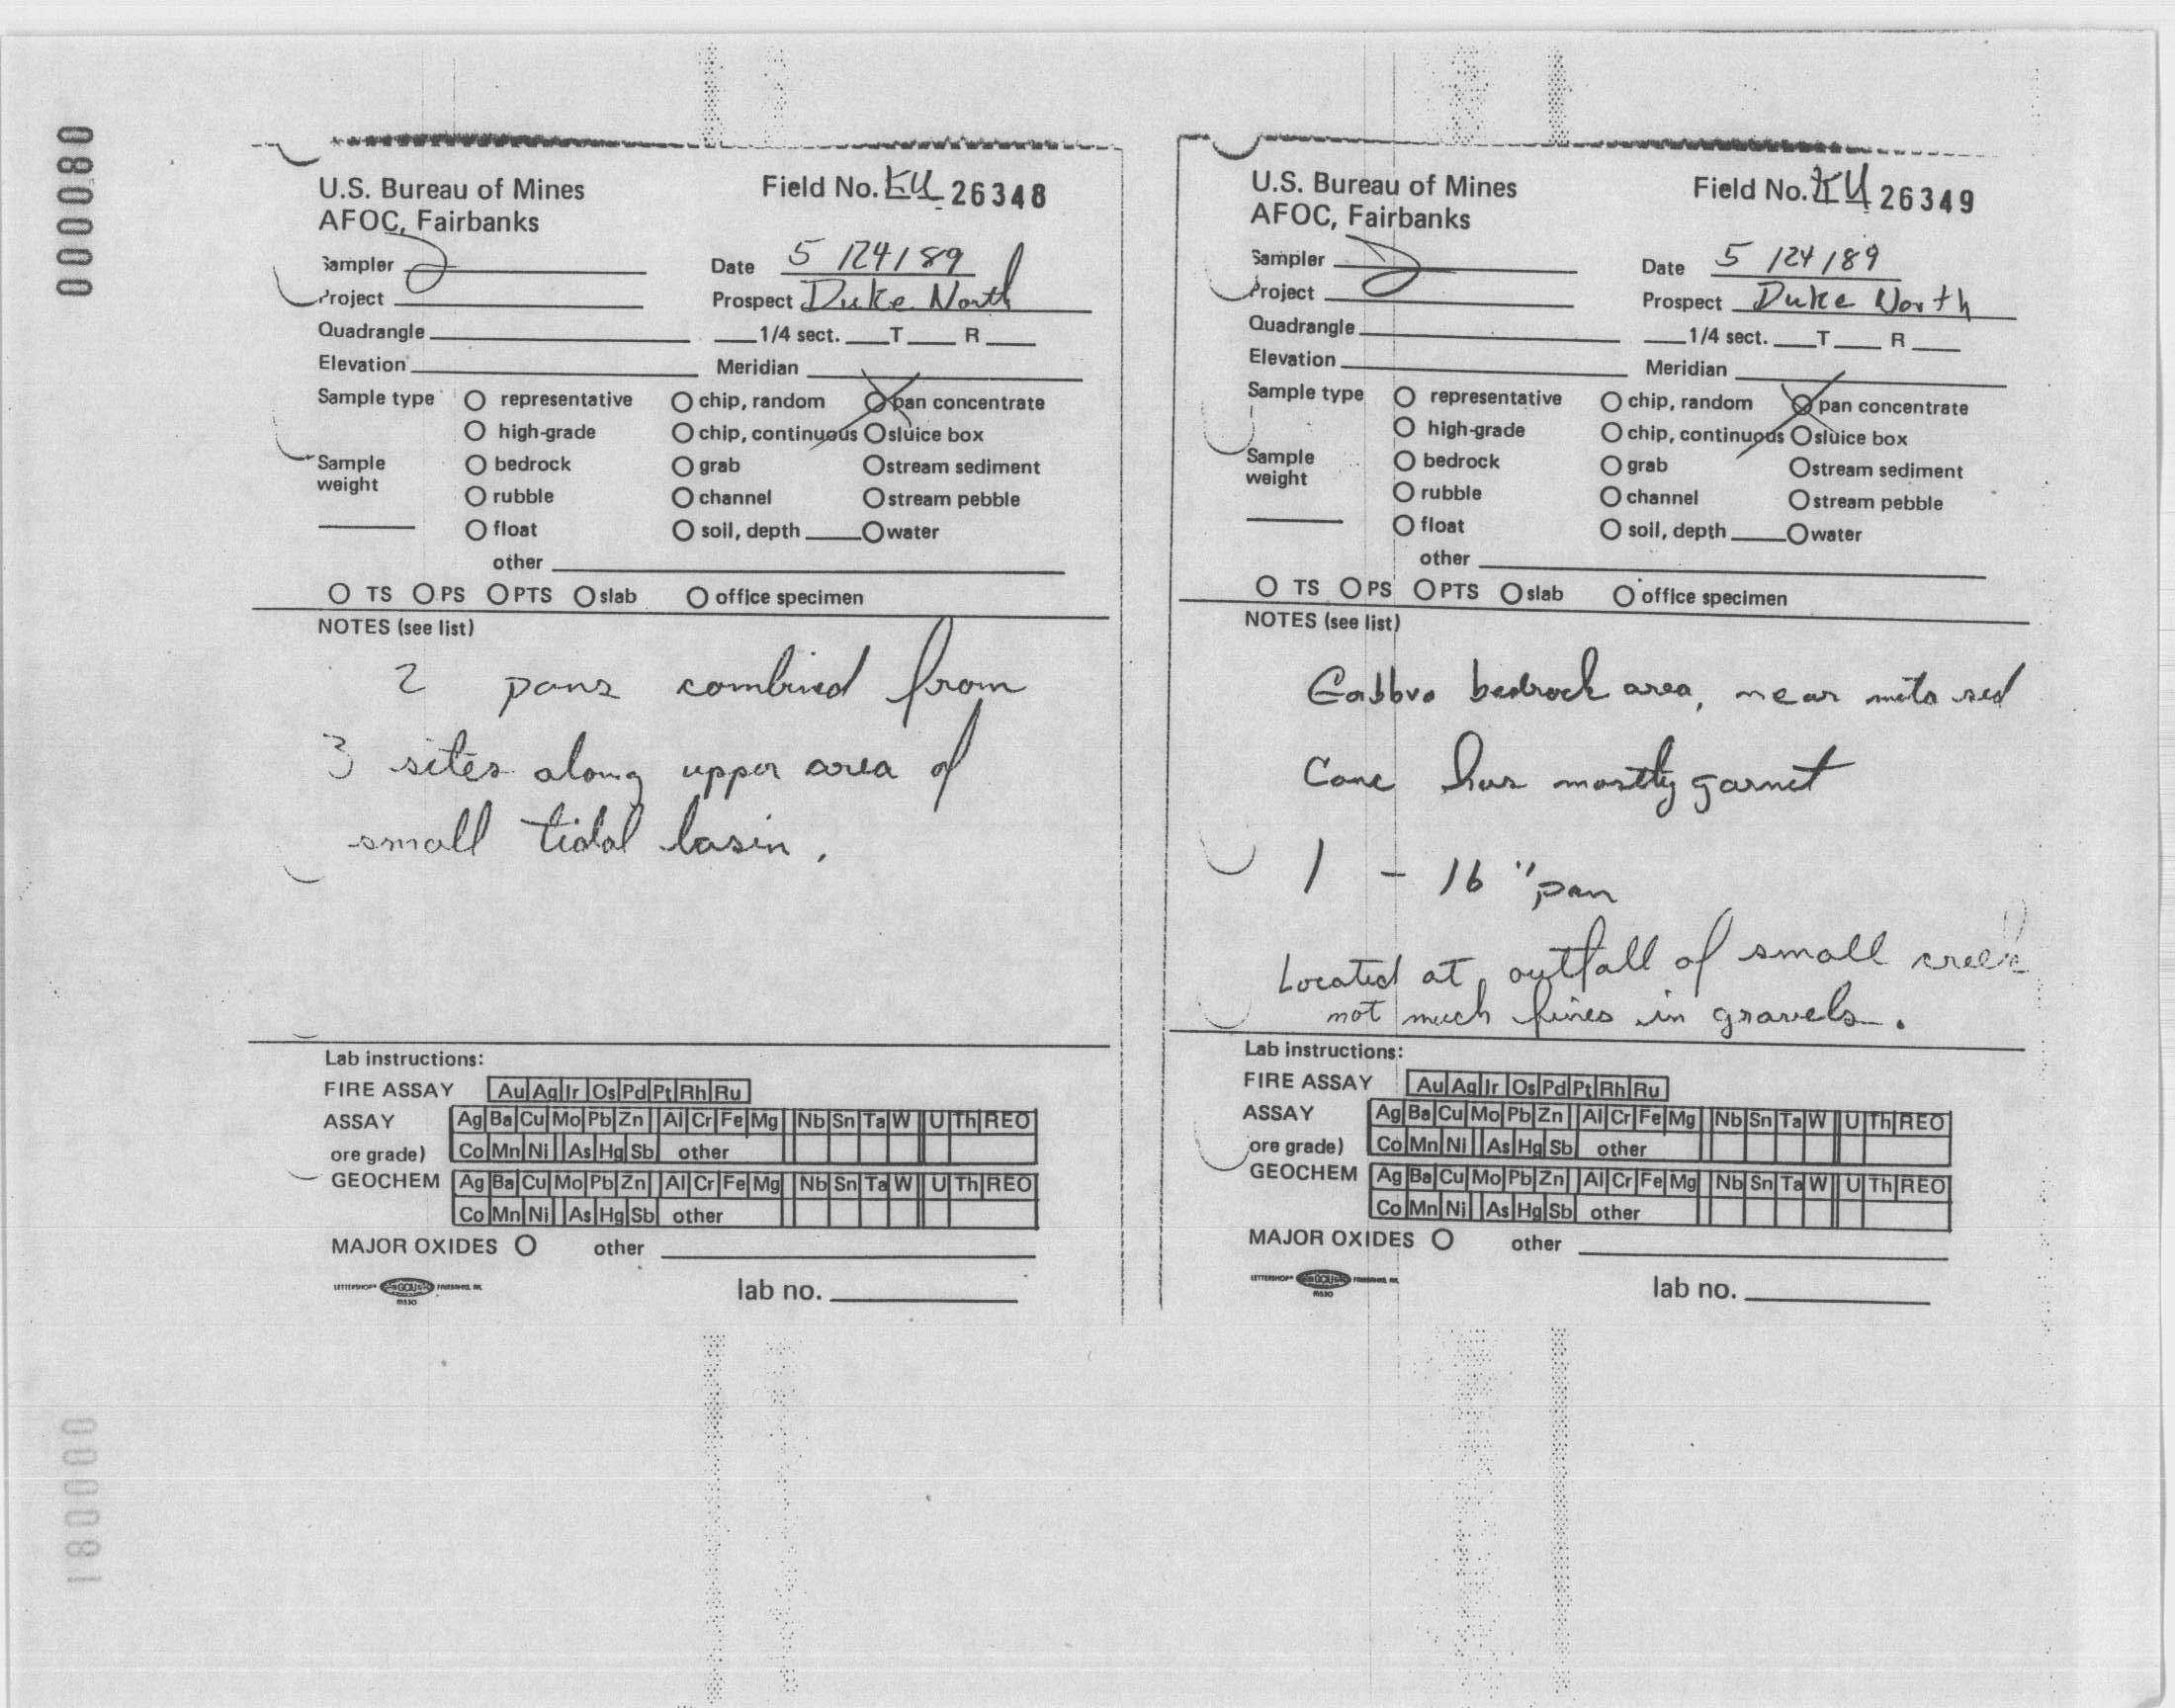 000080
U.S. Bureau of Mines
AFOC, Fairbanks
Field No. KU 26348
Sampler
Date 5/24/89
Project
Prospect Duke North
Quadrangle
1/4 sect. T R
Elevation
Meridian
Sample type representative chip, random pan concentrate
high-grade chip, continuous sluice box
Sample weight bedrock grab stream sediment
rubble channel stream pebble
float soil, depth water
other
TS PS PTS slab office specimen
NOTES (see list)
2 pans combined from
3 sites along upper area of
small tidal basin.
Lab instructions:
FIRE ASSAY Au Ag Ir Os Pd Pt Rh Ru
ASSAY Ag Ba Cu Mo Pb Zn Al Cr Fe Mg Nb Sn Ta W U Th REO
ore grade) Co Mn Ni As Hg Sb other
GEOCHEM Ag Ba Cu Mo Pb Zn Al Cr Fe Mg Nb Sn Ta W U Th REO
Co Mn Ni As Hg Sb other
MAJOR OXIDES other
lab no.
U.S. Bureau of Mines
AFOC, Fairbanks
Field No. KU 26349
Sampler
Date 5/24/89
Project
Prospect Duke North
Quadrangle
1/4 sect. T R
Elevation
Meridian
Sample type representative chip, random pan concentrate
high-grade chip, continuous sluice box
Sample weight bedrock grab stream sediment
rubble channel stream pebble
float soil, depth water
other
TS PS PTS slab office specimen
NOTES (see list)
Gabbro bedrock area, near meta sed
Conc has mostly garnet
1 - 16" pan
Located at outfall of small creek
not much fines in gravels.
Lab instructions:
FIRE ASSAY Au Ag Ir Os Pd Pt Rh Ru
ASSAY Ag Ba Cu Mo Pb Zn Al Cr Fe Mg Nb Sn Ta W U Th REO
ore grade) Co Mn Ni As Hg Sb other
GEOCHEM Ag Ba Cu Mo Pb Zn Al Cr Fe Mg Nb Sn Ta W U Th REO
Co Mn Ni As Hg Sb other
MAJOR OXIDES other
lab no.
000081